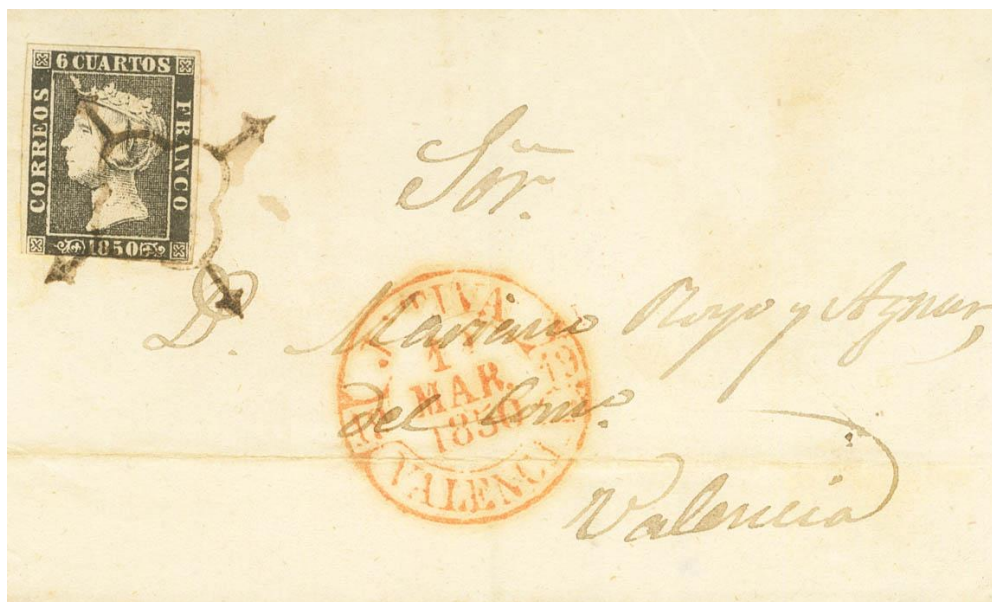 6 CUARTOS
CORREOS
FRANCO
1850
Sor.
D. Mariano Royo y Aznar,
del Comº
Valencia
JATIVA
1
MAR.
1850
19
VALENCIA